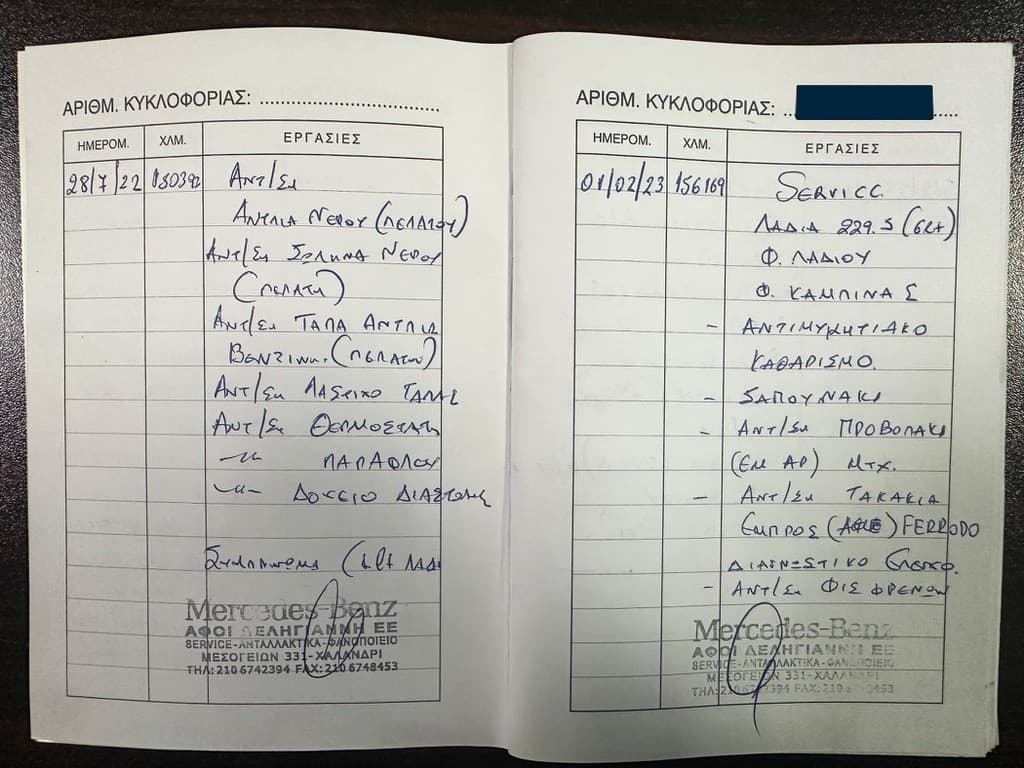 ΑΡΙΘΜ. ΚΥΚΛΟΦΟΡΙΑΣ:
ΗΜΕΡΟΜ. ΧΛΜ. ΕΡΓΑΣΙΕΣ
28/7/22 150392 ΑΝΤ/ΣΗ
ΑΝΤΛΙΑ ΝΕΡΟΥ (ΠΕΛΑΤΟΥ)
ΑΝΤ/ΣΗ ΣΩΛΗΝΑ ΝΕΡΟΥ
(ΠΕΛΑΤΗ)
ΑΝΤ/ΣΗ ΤΑΠΑ ΑΝΤΛΙΑ
ΒΕΝΖΙΝΗΣ (ΠΕΛΑΤΟΥ)
ΑΝΤ/ΣΗ ΛΑΣΤΙΧΟ ΤΑΠΑΣ
ΑΝΤ/ΣΗ ΘΕΡΜΟΣΤΑΤΗ
-//- ΠΑΡΑΦΛΟΥ
-//- ΔΟΧΕΙΟ ΔΙΑΣΤΟΛΗΣ
ΣΥΜΠΛΗΡΩΜΑ (1 Lt ΛΑΔΙ
Mercedes-Benz
ΑΦΟΙ ΔΕΛΗΓΙΑΝΝΗ ΕΕ
SERVICE-ΑΝΤΑΛΛΑΚΤΙΚΑ-ΦΑΝΟΠΟΙΕΙΟ
ΜΕΣΟΓΕΙΩΝ 331-ΧΑΛΑΝΔΡΙ
ΤΗΛ: 210 6742394 FAX: 210 6748453
ΑΡΙΘΜ. ΚΥΚΛΟΦΟΡΙΑΣ:
ΗΜΕΡΟΜ. ΧΛΜ. ΕΡΓΑΣΙΕΣ
01/02/23 156169 SERVICE
ΛΑΔΙΑ 229.5 (6Lt)
Φ. ΛΑΔΙΟΥ
Φ. ΚΑΜΠΙΝΑΣ
- ΑΝΤΙΜΥΚΗΤΙΑΚΟ
ΚΑΘΑΡΙΣΜΟ.
- ΣΑΠΟΥΝΑΚΙ
- ΑΝΤ/ΣΗ ΠΡΟΒΟΛΑΚΙ
(ΕΜ ΑΡ) ΜΤΧ.
- ΑΝΤ/ΣΗ ΤΑΚΑΚΙΑ
ΕΜΠΡΟΣ FERRODO
ΔΙΑΓΝΩΣΤΙΚΟ ΕΛΕΓΧΟ.
- ΑΝΤ/ΣΗ ΦΙΣ ΦΡΕΝΩΝ
Mercedes-Benz
ΑΦΟΙ ΔΕΛΗΓΙΑΝΝΗ ΕΕ
SERVICE-ΑΝΤΑΛΛΑΚΤΙΚΑ-ΦΑΝΟΠΟΙΕΙΟ
ΜΕΣΟΓΕΙΩΝ 331-ΧΑΛΑΝΔΡΙ